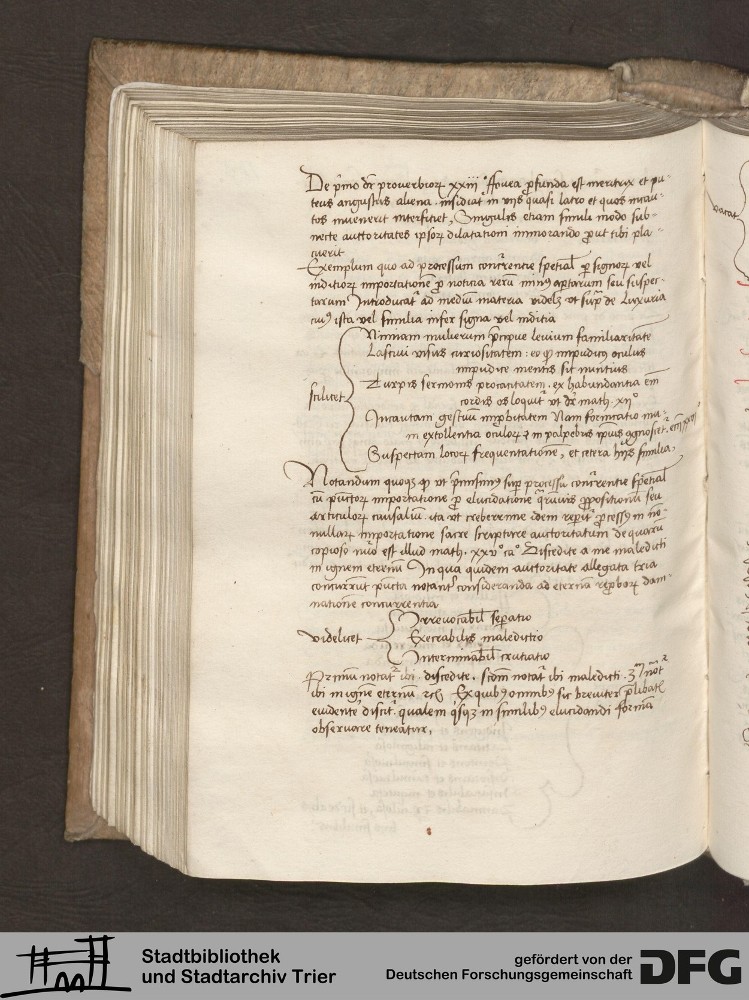 De p̄mo dr̄ proverbiorꝫ xxiij ffovea ꝓfunda est meretrix et pu=
teus angustus aliena. insidiat᷑ in viis quasi latro et quos incau=
tos invenerit interficiet, Singulis etiam simili modo sub=
necte auctoritates ipsorꝫ dilatationi immorando ꝓut tibi pla=
cuerit
Exemplum quo ad processum concurrentie spetial᷑ ꝑ signorꝫ vel
inditiorꝫ importationē ꝓ noticia rerū minꝰ aptarum seu suspec=
tarum Introducat᷑ ad mediū materia videlꝫ vt sup᷑ de Luxuria
cuiꝰ ista vel similia infer signa vel inditia
scilicet
Nimiam mulierum p̄cipue levium familiaritatē
Lascivi visus curiositatem: eo ꝙ impudicꝰ oculus
impudice mentis sit nuntius
Turpis sermonis procacitatem. ex habundantia em̄
cordis os loquit᷑ vt dr̄ math. xijº
Incautam gestuū improbitatem Nam fornicatio mu=
in extollentia oculorꝫ ⁊ in palpebris ipsius agnoscet᷑.
Suspectam locorꝫ frequentationē, et cetera hiꝰ similia,
Notandum quoqꝫ ꝙ vt p̄misimꝰ sup᷑ processu concurrentie spetial
cū punctorꝫ importatione ꝓ elucidatione quarūvis ꝓpositionū seu
articulorꝫ causaliū. ita vt creberrime idem reperit᷑ ꝓcessꝰ in no=
nullarꝫ importatione sacre scripture auctoritatum de quarū
copioso nūo est illud math. xxvº caº Discedite a me maledicti
in ignem eternū In qua quidem auctoritate allegata tria
concurrūt pūcta notant᷑ consideranda ad eternā reproborꝫ dam=
nationē concurrentia
videlicet
Irrevocabil᷑ separatio
Execrabilis maledictio
Interminabil᷑ cruciatio
Primū notat᷑ ibi. discedite. scdm notat᷑ ibi maledicti. 3m̄ not᷑
ibi in ignē eternū. rc̄ Ex quibꝰ omnibꝰ sic breviter p̄libatis
evidentē discit᷑. qualem quisqꝫ in similibꝰ elucidandi formā
observare teneatur,
vacat
Stadtbibliothek
und Stadtarchiv Trier
gefördert von der
Deutschen Forschungsgemeinschaft
DFG